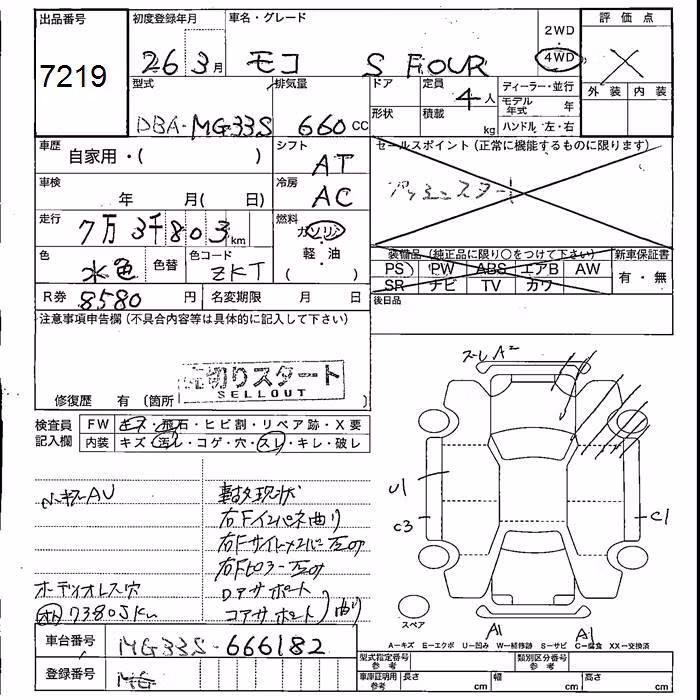 出品番号
7219
初度登録年月
26 3月
車名・グレード
モコ S FOUR
2WD
4WD
評価点
外装 内装
型式
DBA-MG33S
排気量
660 cc
ドア
形状
定員
4人
積載
kg
ディーラー・並行
モデル年式 年
ハンドル 左・右
車歴
自家用・( )
シフト
AT
セールスポイント (正常に機能するものに限ります)
車検
年 月( 日)
冷房
AC
走行
7万3千803km
燃料
ガソリン
軽・油
( )
色
水色
色替
色コード
ZKT
装備品 (純正品に限り○をつけて下さい)
PS PW ABS エアB AW
SR ナビ TV カワ
新車保証書
有・無
R券 8580 円
名変期限 月 日
後日品
注意事項申告欄 (不具合内容等は具体的に記入して下さい)
売切りスタート
SELLOUT
修復歴 有 (箇所 )
検査員記入欄
FW キズ・飛石・ヒビ割・リペア跡・X要
内装 キズ・汚レ・コゲ・穴・スレ・キレ・破レ
ズレ A2
U1
C3
C1
A1
A1
スペア
右Fインパネ曲り
オーディオレス穴
コアサポート
73805km
曲り
A=キズ E=エクボ U=凹み W=補修跡 S=サビ C=腐食 XX=交換済
車台番号
MG33S-666182
登録番号
型式指定番号 参考
類別区分番号 参考
車庫証明用 参考
長さ cm
幅 cm
高さ cm